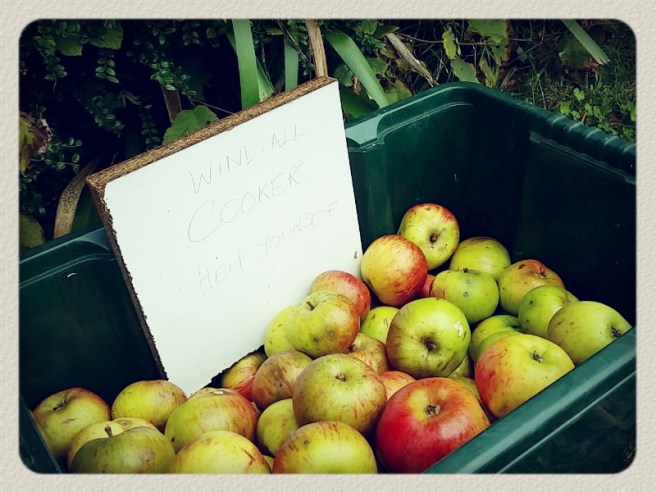 WINDFALL
COOKERS
HELP YOURSELF